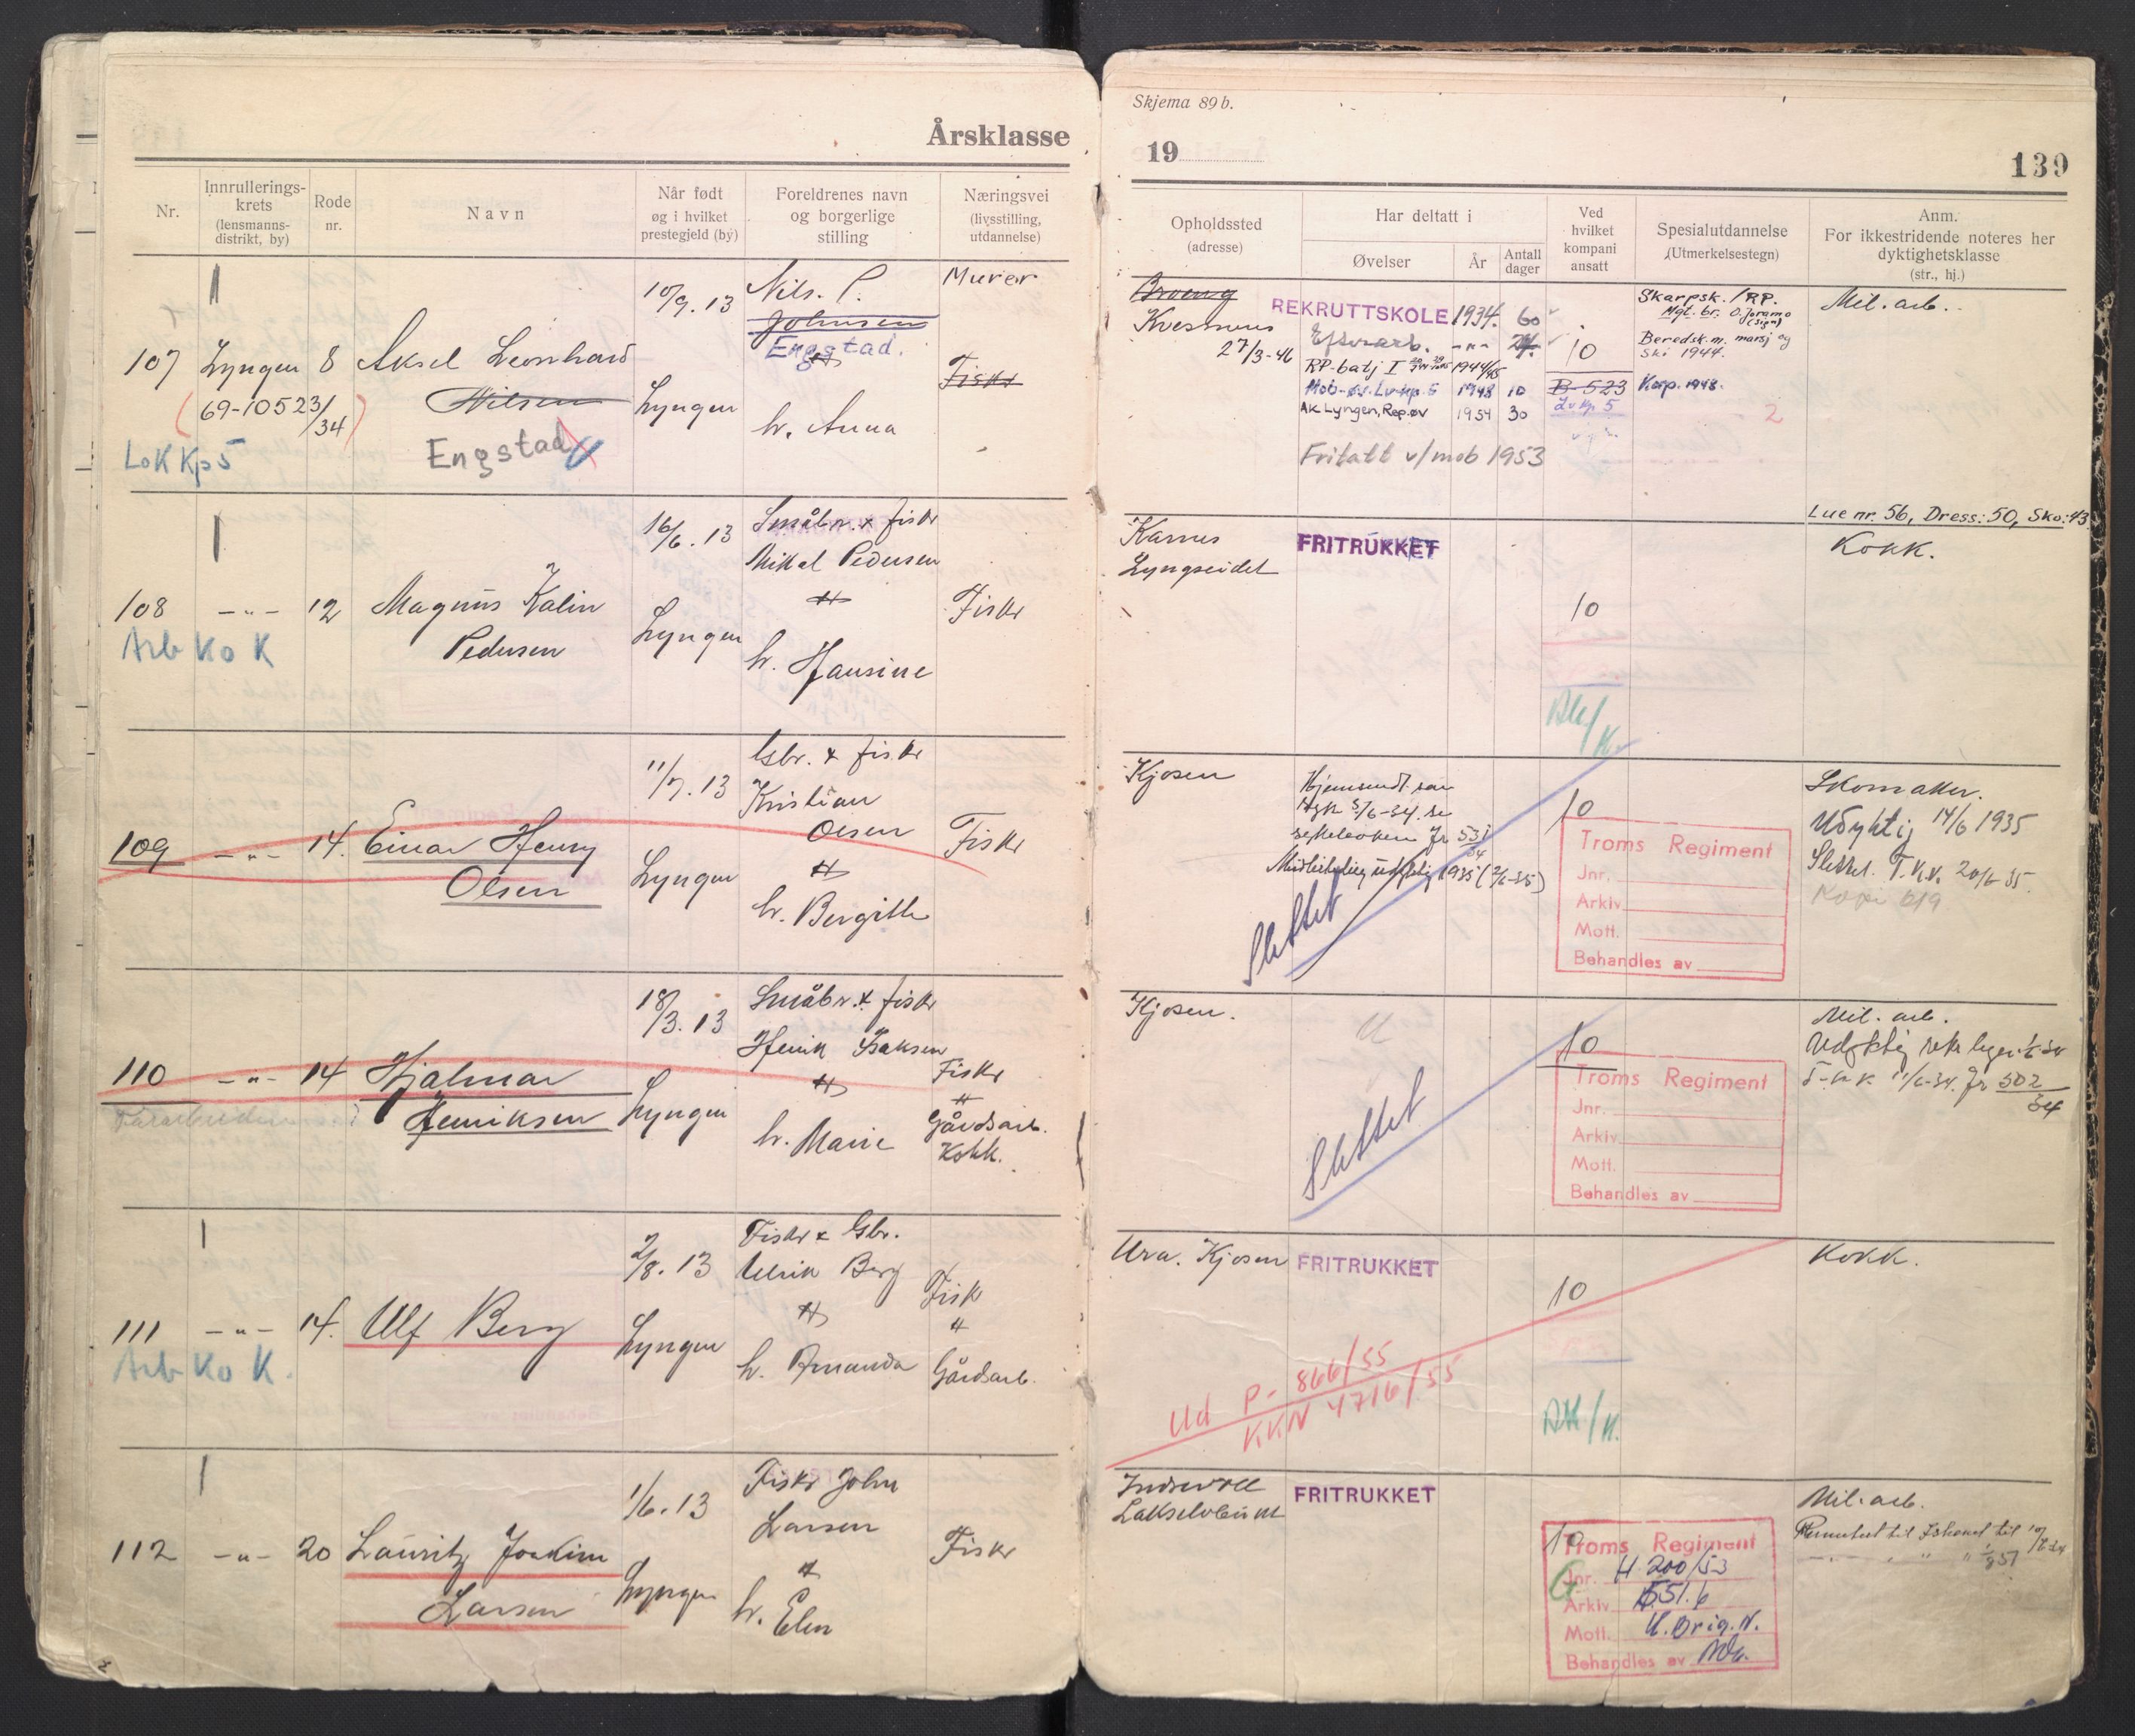 Årsklasse
Nr.
Innrullerings-
krets
(lensmanns-
distrikt, by)
Rode
nr.
Navn
Når født
og i hvilket
prestegjeld (by)
Foreldrenes navn
og borgerlige
stilling
Næringsvei
(livsstilling,
utdannelse)
107 Lyngen 8 Aksel Leonhard
Nilsen
Engstad
(69-10523/34)
LoK Kp 5
10/9. 13
Lyngen
Nils. P.
Johnsen
Engstad.
h. Anna
Murer
Fisker
108 -"- 12 Magnus Kalin
Pedersen
Arb Ko K
16/6. 13
Lyngen
Småbr. & fisker
Mikal Pedersen
h. Hansine
Fisker
109 -"- 14. Einar Henry
Olsen
11/7. 13
Lyngen
Gbr. & fisker
Kristian
Olsen
h. Bergitte
Fisker
110 -"- 14 Hjalmar
Henriksen
18/3. 13
Lyngen
Småbr. & fisker
Henrik Isaksen
h. Marie
Fisker
Gårdsarb.
Kokk.
111 -"- 14. Ulf Berg
Arb Ko K.
2/8. 13
Lyngen
Fisker & Gbr.
Ulrik Berg
h. Amanda
Fisk
Gårdsarb.
112 -"- 20 Lauritz Joakim
Larsen
1/6. 13
Lyngen
Fisker John
Larsen
h. Elen
Fisker
Skjema 89 b.
19
139
Opholdssted
(adresse)
Har deltatt i
Øvelser
År
Antall
dager
Ved
hvilket
kompani
ansatt
Spesialutdannelse
(Utmerkelsestegn)
Anm.
For ikkestridende noteres her
dyktighetsklasse
(str., hj.)
Kvesmenes
27/3-46
REKRUTTSKOLE 1934. 60
Efterarb. -"- 24.
RP-batj I 1944/45
Mob-øv. Lv.kp. 5 1948 10
AK Lyngen, Rep.øv 1954 30
Fritatt v/mob 1953
10
B-523
Lv kp 5
Skarpsk. / RP.
Mgt. br. O. Joramo
(sign)
Beredsk.m. marsj og
ski 1944.
Korp. 1948.
2
Mil. arb.
Lue nr. 56, Dress: 50, Sko: 43
Karnes
Lyngseidet
FRITRUKKET
10
Kokk.
Kjosen
Slettet
10
Troms Regiment
Jnr.
Arkiv
Mott.
Behandles av
Skomaker.
Udyktig 14/6 1935
Slettet. T.K.V. 20/6 35.
Kopi 619
Kjosen.
Slettet
10
Troms Regiment
Jnr.
Arkiv
Mott.
Behandles av
Mil. arb.
11/6-34. Jr 502/34
Ura. Kjosen
FRITRUKKET
10
Kokk.
Ud P- 866/55
KKN 4716/55
Lakselvbukt
FRITRUKKET
10
Troms Regiment
Jnr. H 200/53
Arkiv 551.6
Mott. U. Orig. N.
Behandles av
G
Mil. arb.